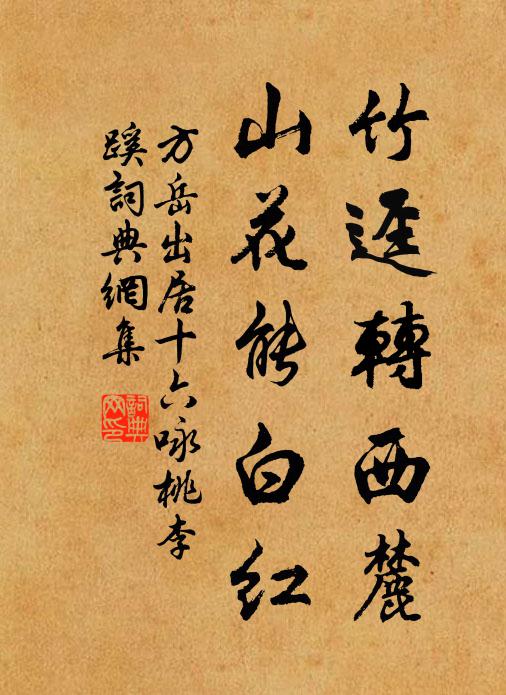 竹逕轉西麓
山花能白紅
方岳出居十六咏桃李
蹊詞典網集
詞典
网印